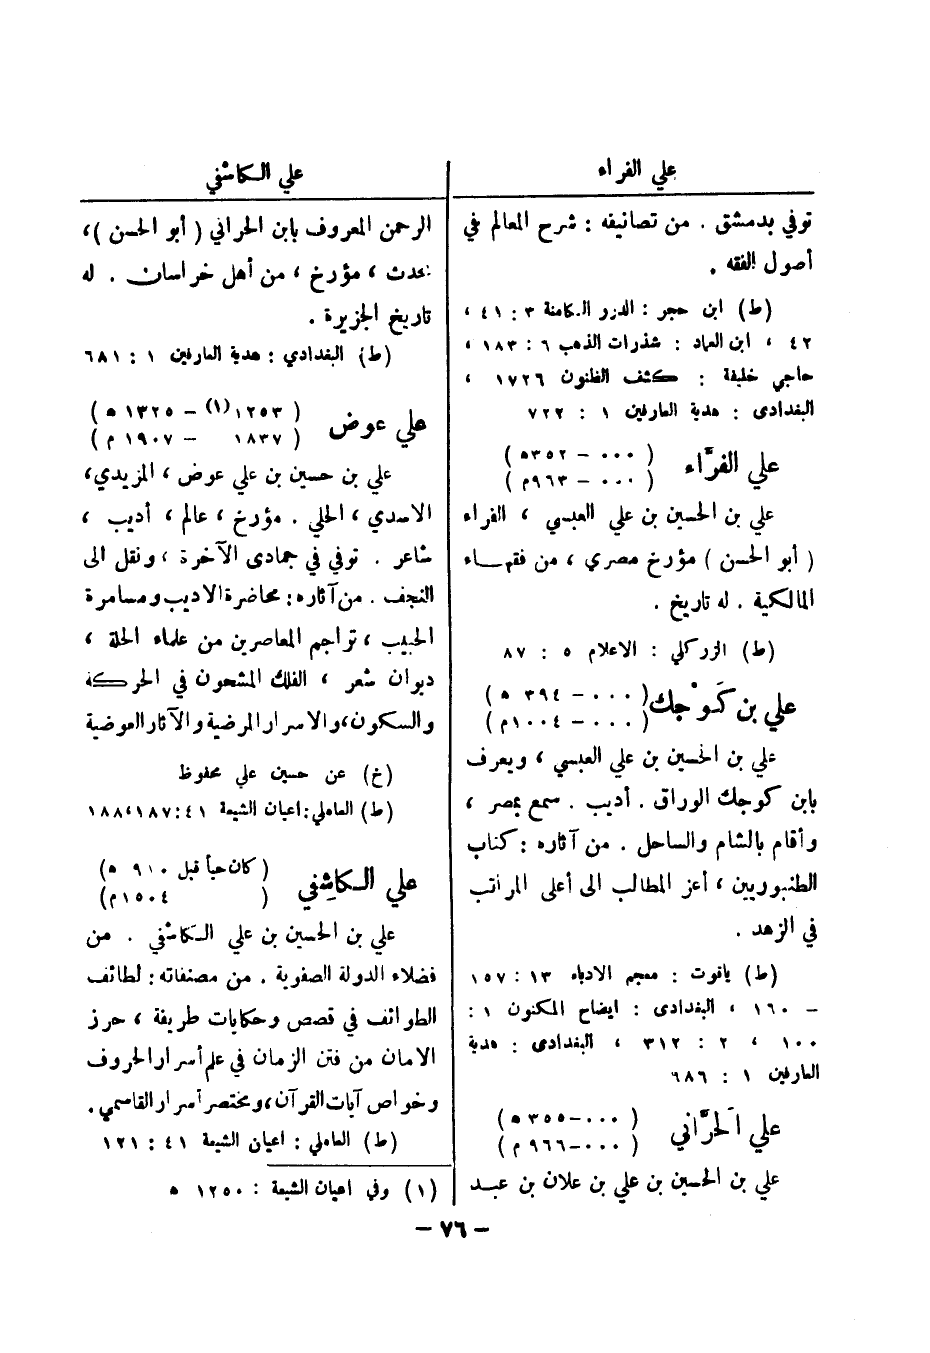 علي الفراء
توفي بدمشق . من تصانيفه : شرح المعالم في
أصول الفقه .
(ط) ابن حجر : الدرر الكامنة ٣ : ٤١ ،
٤٢ ، ابن العماد : شذرات الذهب ٦ : ١٨٣ ،
حاجي خليفة : كشف الظنون ١٧٢٦ ،
البغدادى : هدية العارفين ١ : ٧٢٢
علي الفرَّاء ( ٠٠٠ – ٣٥٢ ه )
( ٠٠٠ – ٩٦٣ م )
علي بن الحسين بن علي العبسي ، الفراء
( أبو الحسن ) مؤرخ مصري ، من فقهاء
المالكية . له تاريخ .
(ط) الزركلي : الاعلام ٥ : ٨٧
علي بن كَوْجك ( ٠٠٠ – ٣٩٤ ه )
( ٠٠٠ – ١٠٠٤ م )
علي بن الحسين بن علي العبسي ، ويعرف
بابن كوجك الوراق . أديب . سمع بمصر ،
وأقام بالشام والساحل . من آثاره : كتاب
الطنبوريين ، أعز المطالب الى أعلى المراتب
في الزهد .
(ط) ياقوت : معجم الادباء ١٣ : ١٥٧
– ١٦٠ ، البغدادى : ايضاح المكنون ١ :
١٠٠ ، ٢ : ٣١٢ ، البغدادى : هدية
العارفين ١ : ٦٨٦
علي الحرَّاني ( ٠٠٠ – ٣٥٥ ه )
( ٠٠٠ – ٩٦٦ م )
علي بن الحسين بن علي بن علان بن عبد
علي الكاشفي
الرحمن المعروف بابن الحراني ( أبو الحسن ) ،
محدث ، مؤرخ ، من أهل خراسان . له
تاريخ الجزيرة .
(ط) البغدادي : هدية العارفين ١ : ٦٨١
علي عوض ( ١٢٥٣(١) – ١٣٢٥ ه )
( ١٨٣٧ – ١٩٠٧ م )
علي بن حسين بن علي عوض ، المزيدي ،
الاسدي ، الحلي . مؤرخ ، عالم ، أديب ،
شاعر . توفي في جمادى الآخرة ، ونقل الى
النجف . من آثاره : محاضرة الاديب ومسامرة
الحبيب ، تراجم المعاصرين من علماء الحلة ،
ديوان شعر ، الفلك المشحون في الحركة
والسكون ، والاسرار المرضية والآثار العوضية
(خ) عن حسين علي محفوظ
(ط) العاملي : اعيان الشيعة ٤١ : ١٨٧ ، ١٨٨
علي الكاشِفي ( كان حياً قبل ٩١٠ ه )
( ١٥٠٤ م )
علي بن الحسين بن علي الكاشفي . من
فضلاء الدولة الصفوية . من مصنفاته : لطائف
الطوائف في قصص وحكايات طريفة ، حرز
الامان من فتن الزمان في علم أسرار الحروف
وخواص آيات القرآن ، ومختصر أسرار القاسمي .
(ط) العاملي : اعيان الشيعة ٤١ : ١٢١
(١) وفي اعيان الشيعة : ١٢٥٠ ه
– ٧٦ –